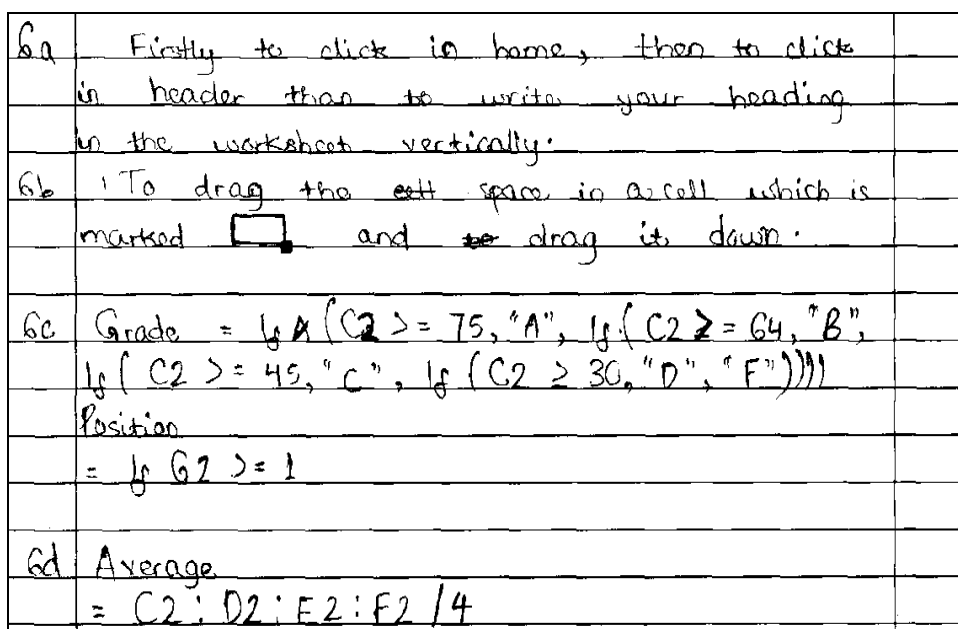 6a Firstly to click in home, then to click
in header than to write your heading
in the worksheet vertically.
6b To drag the cell space in a cell which is
marked and to drag it down.
6c Grade = If A (C2 >= 75, "A", If ( C2 >= 64, "B",
If ( C2 >= 45, "C", If (C2 ≥ 30, "D", "F"))))
Position
= If G2 >= 1
6d Average
= C2 : D2 : E2 : F2 / 4